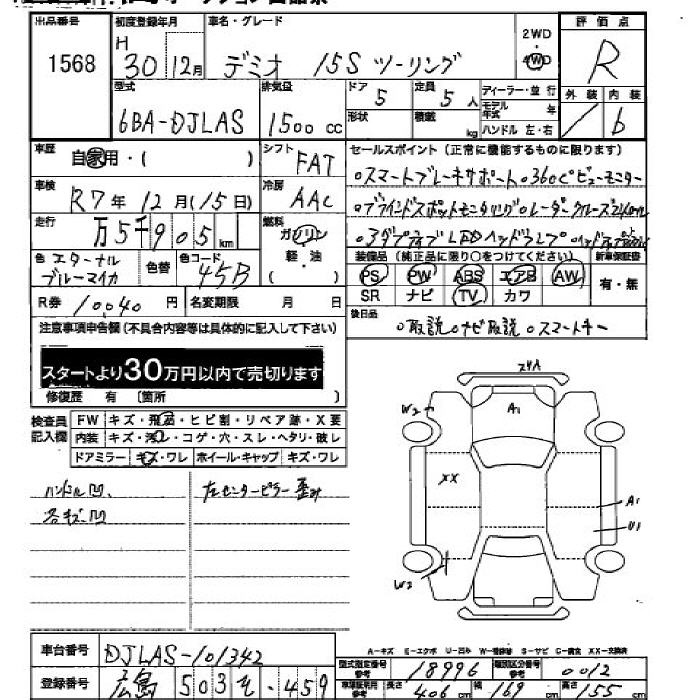 出品番号 初度登録年月 車名・グレード 2WD ・ 4WD 評価点
1568 H 30 12月 デミオ 15S ツーリング R
型式 排気量 ドア 5 定員 5 人 ディーラー・並行 外装 内装
6BA-DJLAS 1500 cc 形状 積載 kg モデル年式 年 / b
ハンドル 左・右
車歴 自家用・( ) シフト FAT セールスポイント (正常に機能するものに限ります)
車検 R7年 12月(15日) 冷房 AAC 。スマートブレーキサポート。360°ビューモニター
走行 万5千905 km 燃料 ガソリン 軽・油 ( ) 。ブラインドスポットモニタリング。レーダークルーズ
。アダプティブLEDヘッドランプ
色 エターナルブルーマイカ 色替 色コード 45B 装備品 (純正品に限り○をつけてください) 新車保証書
PS PW ABS エアB AW 有・無
SR ナビ TV カワ
R券 10,040 円 名変期限 月 日
注意事項申告欄 (不具合内容等は具体的に記入して下さい) 後日品 。取説。ナビ取説。スマートキー
スタートより30万円以内で売切ります
修復歴 有 〔箇所 )
検査員記入欄 FW キズ・飛石・ヒビ割・リペア跡・X要
内装 キズ・汚レ・コゲ・穴・スレ・ヘタリ・破レ
ドアミラー キズ・ワレ ホイール・キャップ キズ・ワレ
ハンドル凹、 左センターピラー歪み
各キズ凹
W2 A1
XX
A1
U1
W2
A-キズ E-エクボ U-凹み W-補修跡 S-サビ C-腐食 XX-交換済
車台番号 DJLAS-101342
型式指定番号 参考 18996 類別区分番号 参考 0012
登録番号 広島 503 そ -459
長さ 406 cm 幅 169 cm 高さ 155 cm